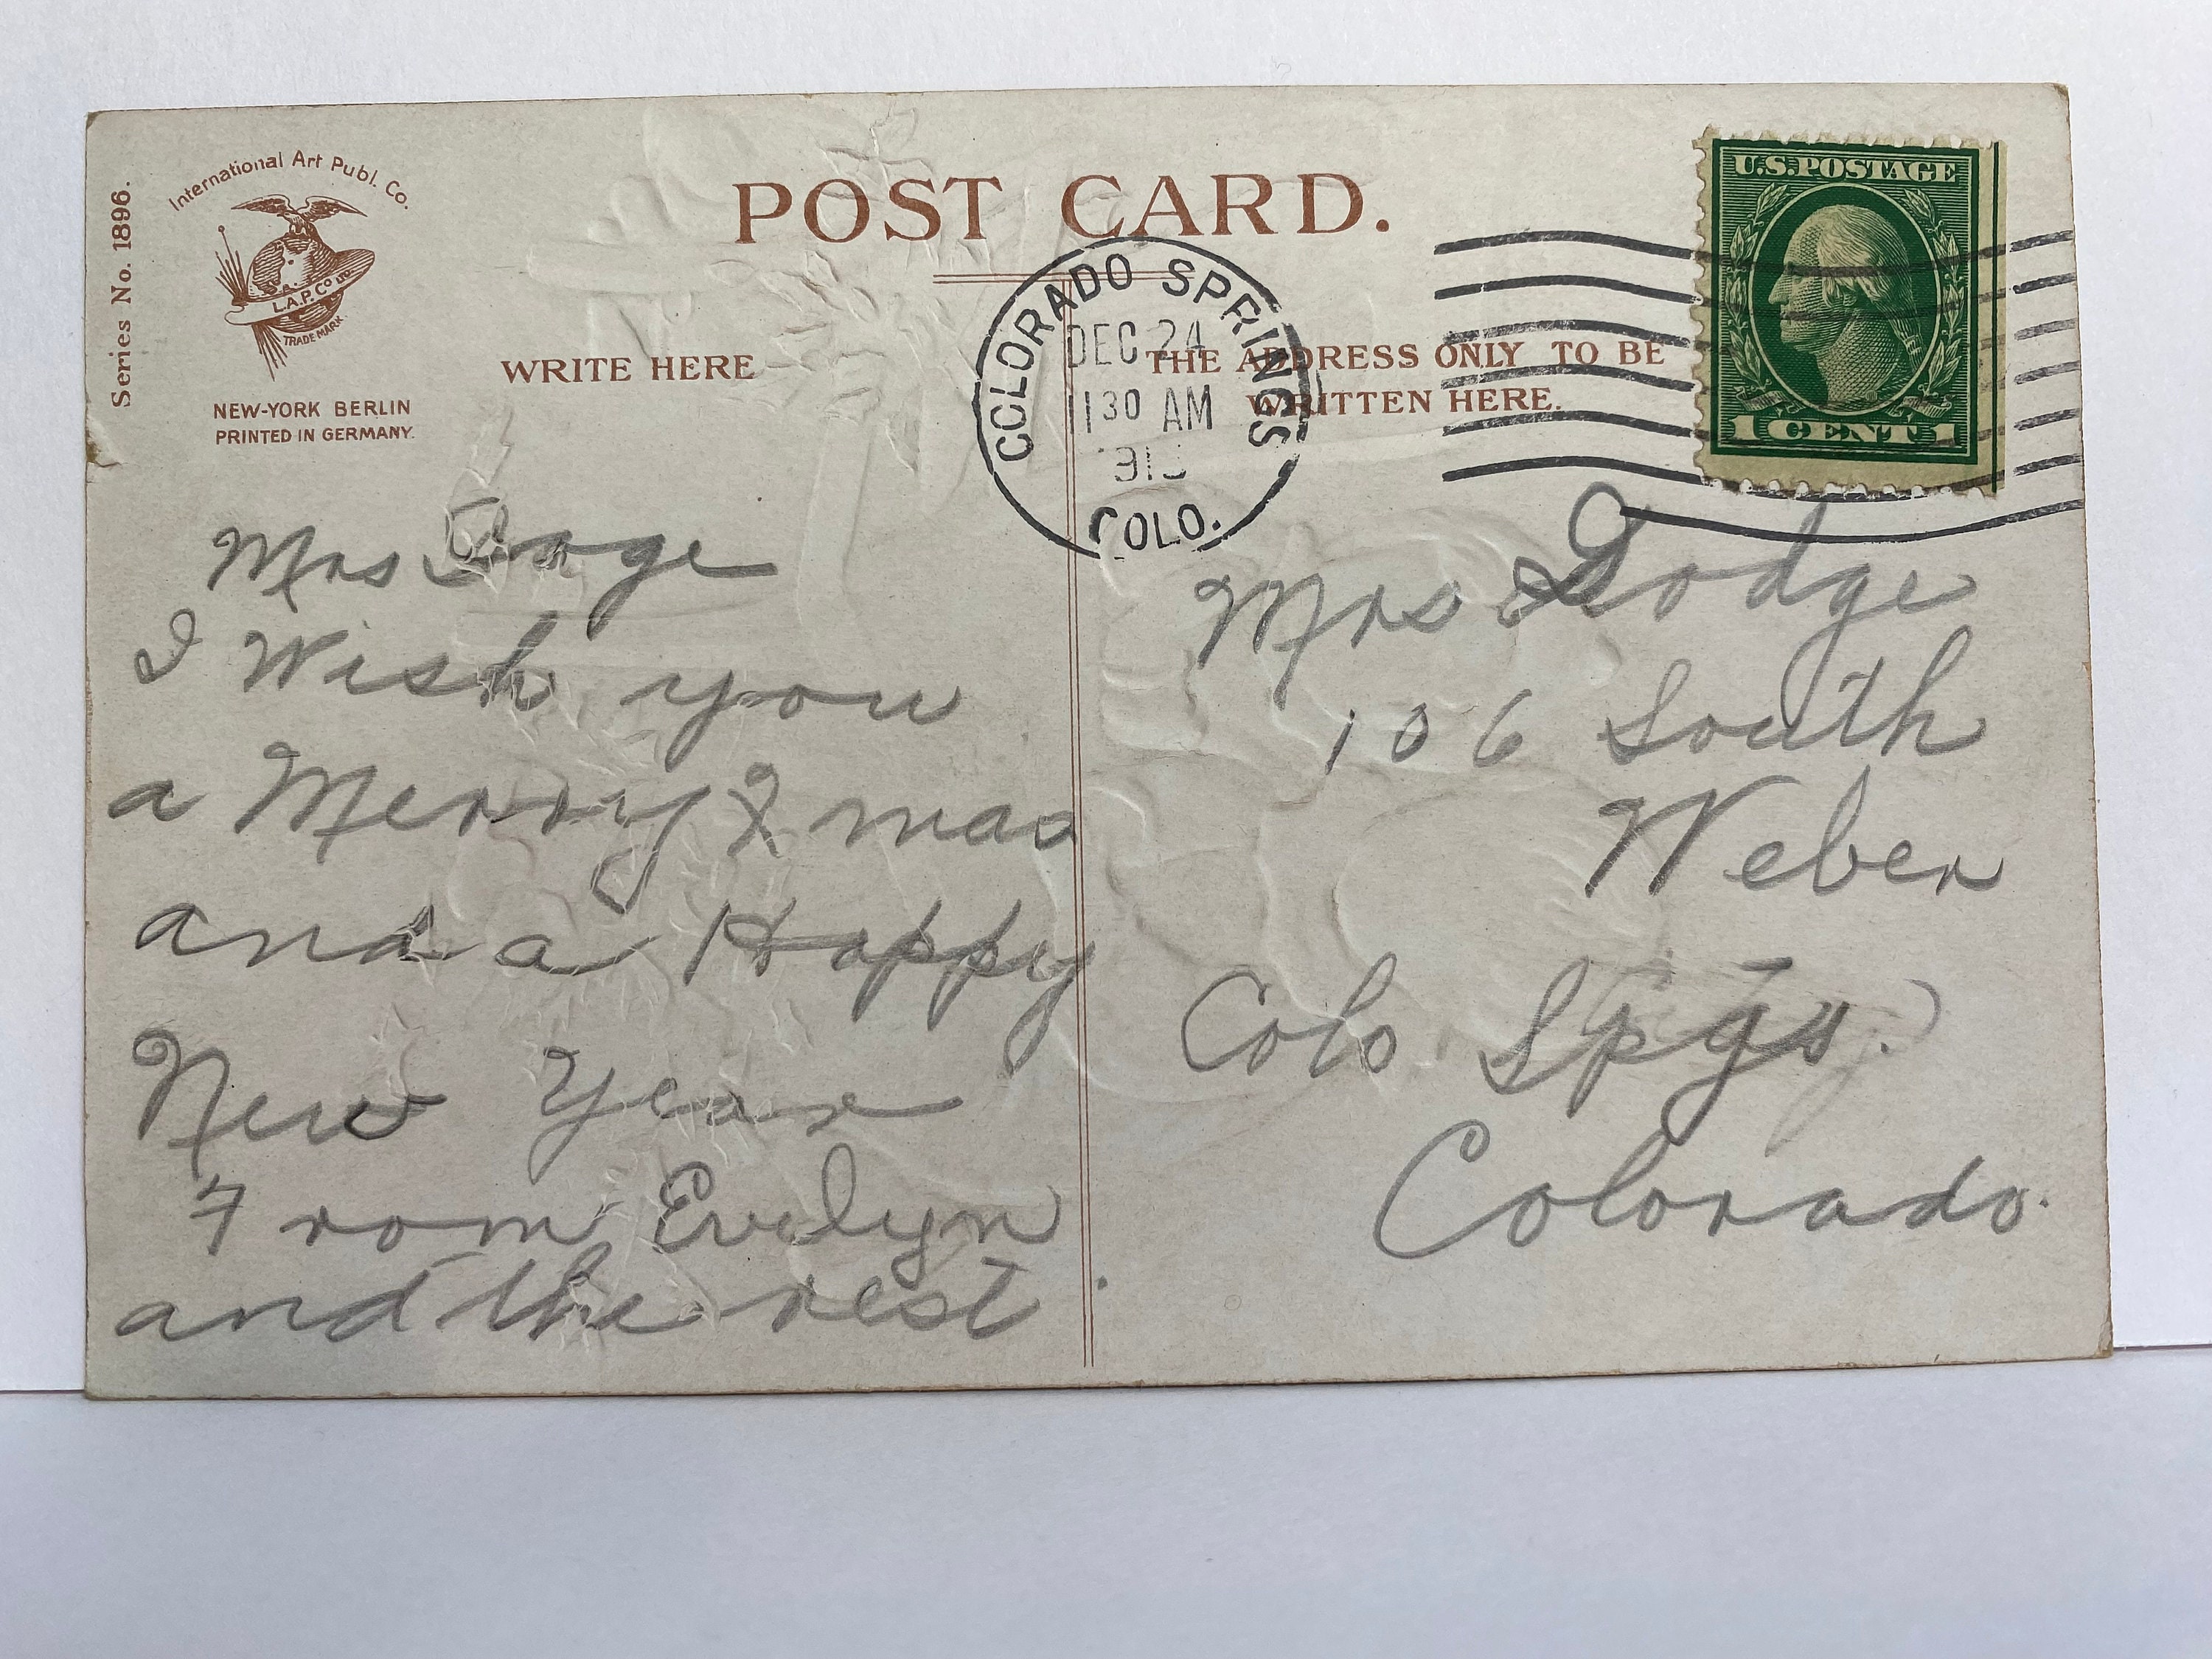 Series No. 1896.
International Art Publ. Co.
I.A.P. Co Ltd.
TRADE MARK
NEW-YORK BERLIN
PRINTED IN GERMANY.
POST CARD.
WRITE HERE
THE ADDRESS ONLY TO BE
WRITTEN HERE.
COLORADO SPRINGS
DEC 24
1130 AM
COLO.
U.S. POSTAGE
1 CENT 1
Mrs
I Wish you
a Merry Xmas
and a Happy
New Year
From Evelyn
and the rest
Mrs Dodge
106 South
Weber
Colo Spgs.
Colorado.